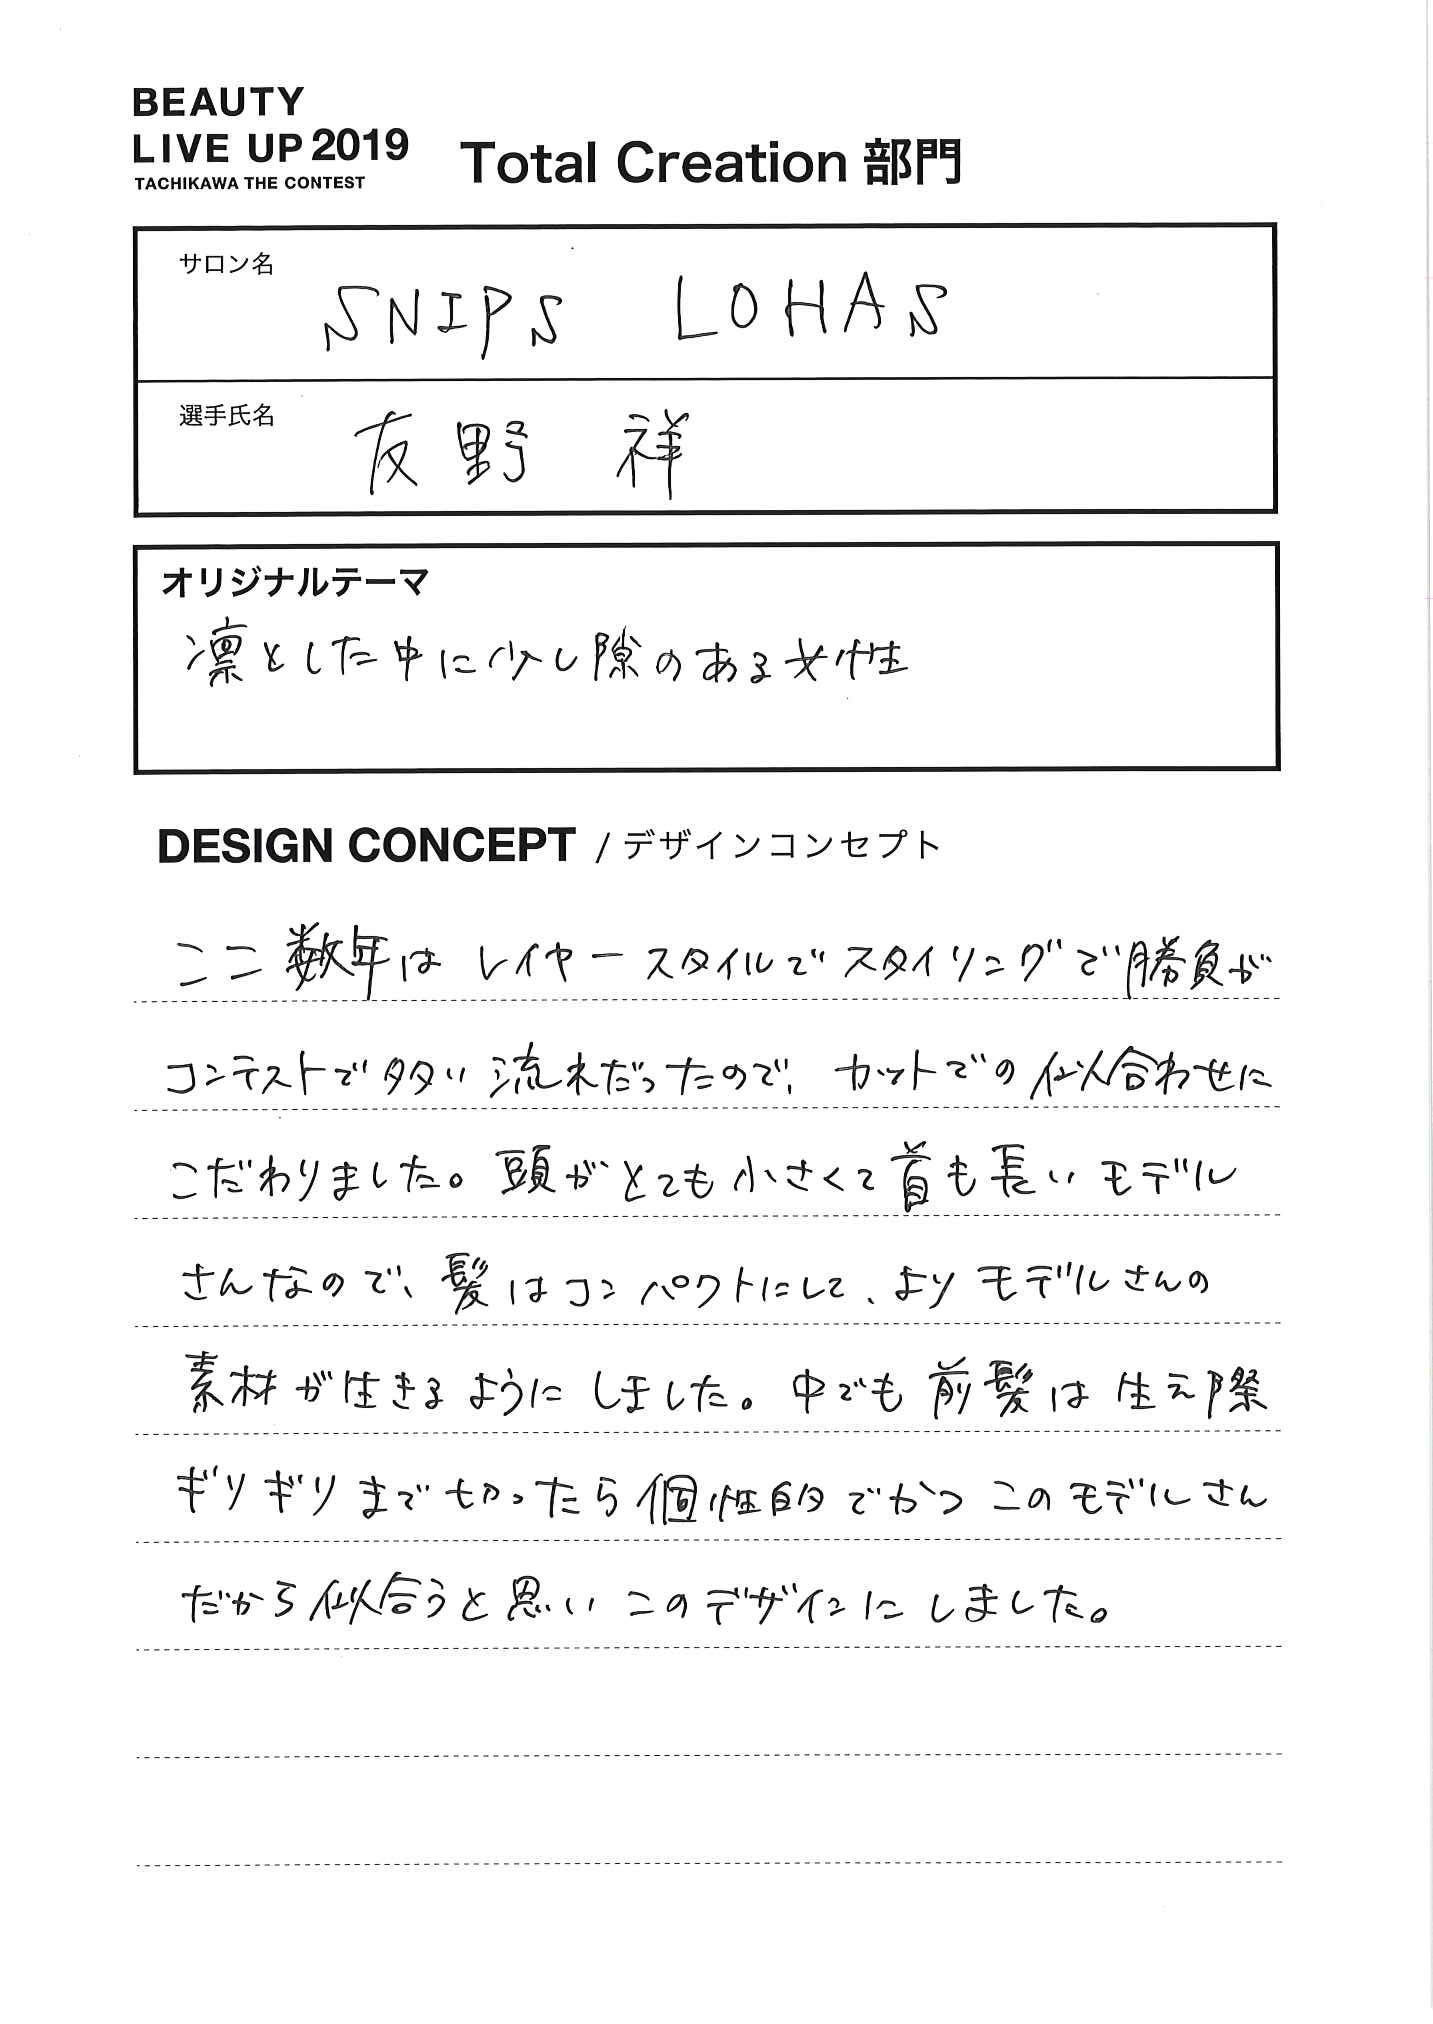 BEAUTY
LIVE UP 2019
TACHIKAWA THE CONTEST
Total Creation 部門
サロン名
SNIPS LOHAS
選手氏名
友野 祥
オリジナルテーマ
凛とした中に少し隙のある女性
DESIGN CONCEPT / デザインコンセプト
ここ数年はレイヤースタイルでスタイリングで勝負が
コンテストで多い流れだったので、カットでの似合わせに
こだわりました。頭がとても小さくて首も長いモデル
さんなので、髪はコンパクトにして、よりモデルさんの
素材が生きるようにしました。中でも前髪は生え際
ギリギリまで切ったら個性的でかつこのモデルさん
だから似合うと思いこのデザインにしました。